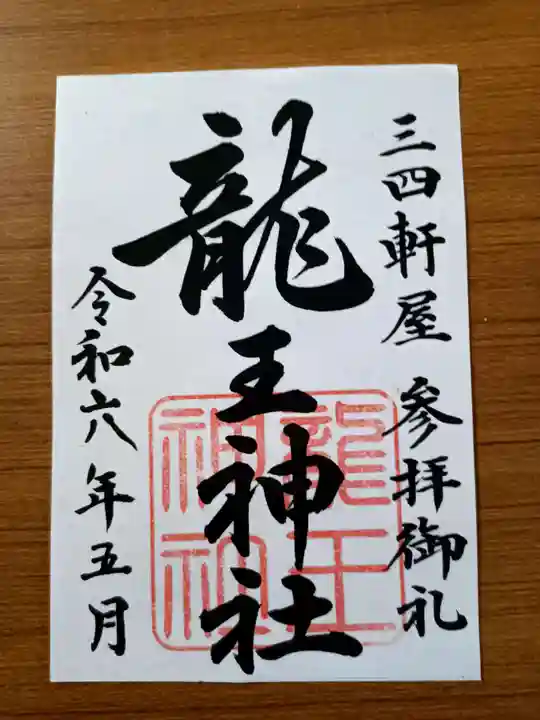 三四軒屋 参拝御礼
龍王神社
龍王神社
令和六年五月